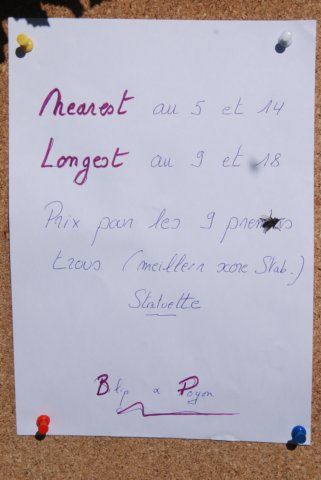 Nearest au 5 et 14
Longest au 9 et 18
Prix pour les 9 premiers
trous (meilleur score Stab.)
Statuette